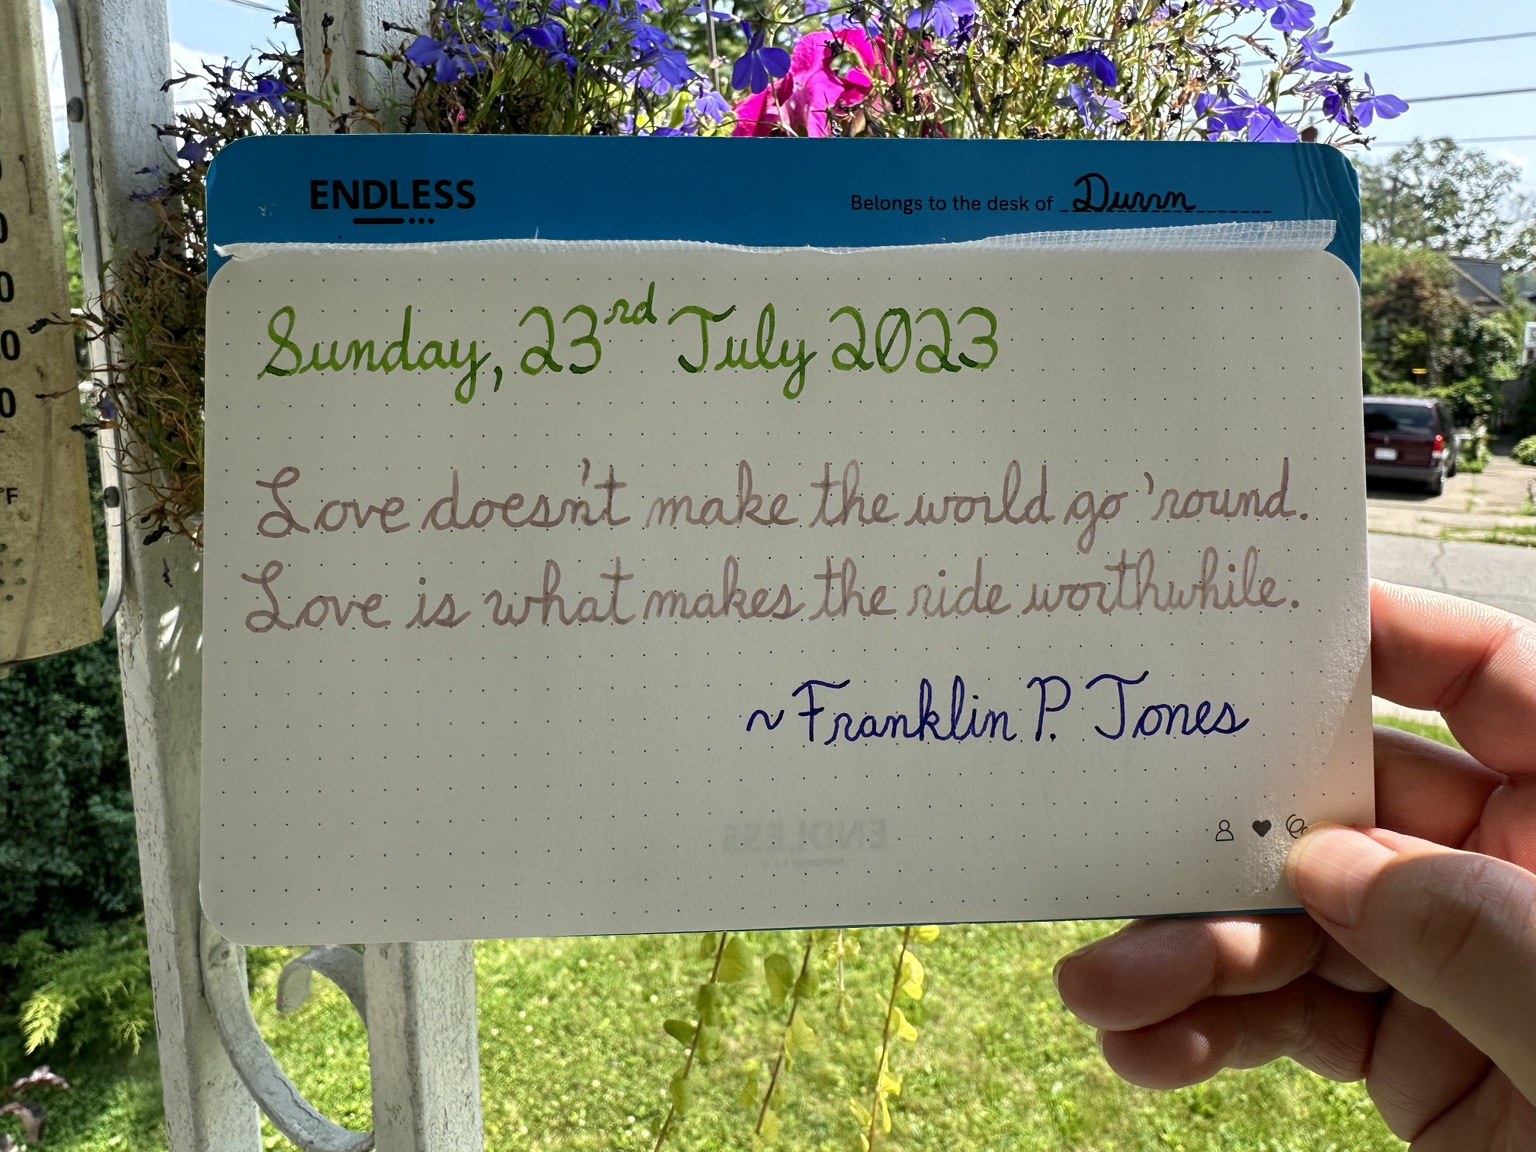 ENDLESS
Belongs to the desk of Durrn
Sunday, 23rd July 2023
Love doesn't make the world go 'round.
Love is what makes the ride worthwhile.
~Franklin P. Jones
ENDLESS
0
0
0
0
°F